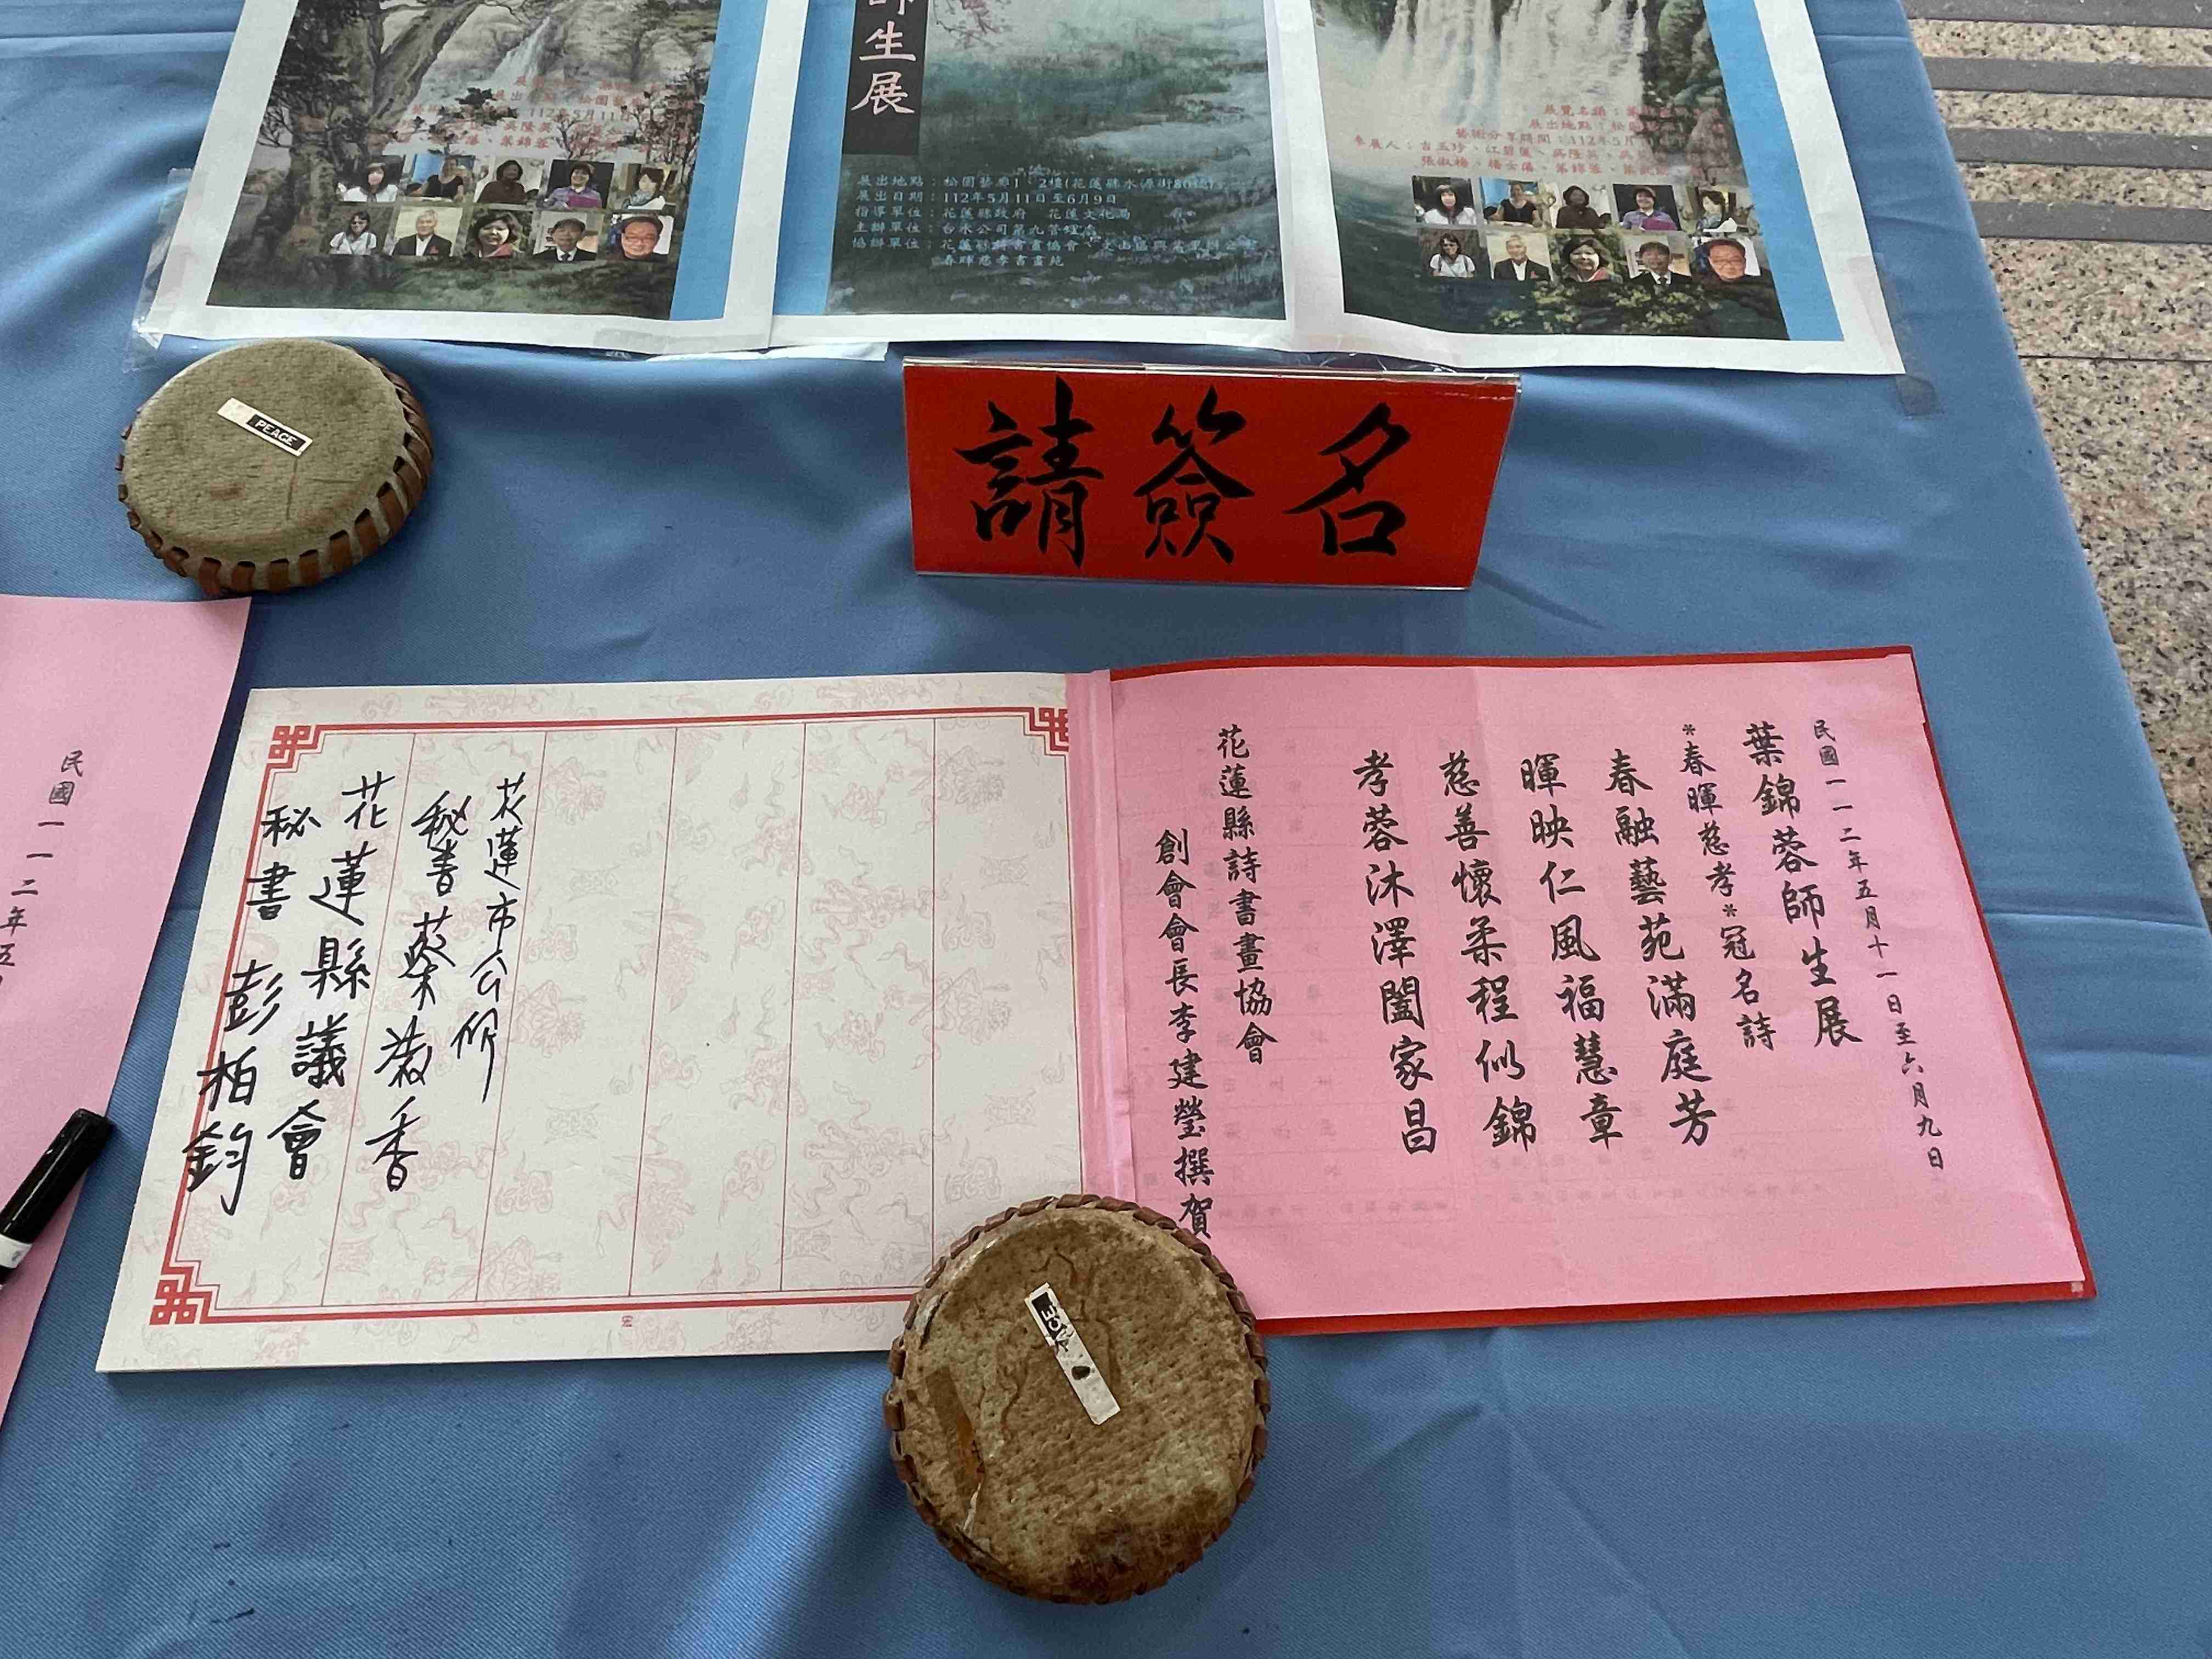 師生展
展出地點：松園藝廊1、2樓(花蓮縣水源街80號)
展出日期：112年5月11日至6月9日
指導單位：花蓮縣政府 花蓮文化局
主辦單位：台水公司第九管理處
春暉慈孝書畫苑
112年5月11日
展覽名稱：葉
展出地點：松園
藝術分享時間：112年5月
參展人：
PEACE
請簽名
民國一一二年五月十一日至六月九日
葉錦蓉師生展
*春暉慈孝*冠名詩
春融藝苑滿庭芳
暉映仁風福慧章
慈善懷柔程似錦
孝蓉沐澤闔家昌
花蓮縣詩書畫協會
創會會長李建瑩撰賀
花蓮市公所
秘書蔡淑香
花蓮縣議會
秘書 彭柏鈞
民國一一二年五